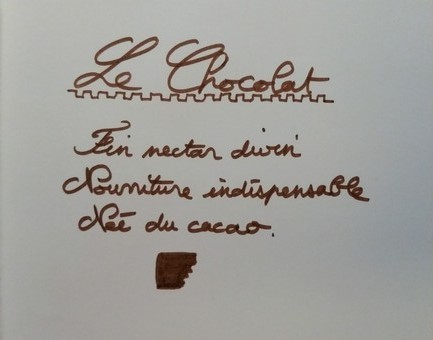 Le Chocolat
Fin nectar divin
Nourriture indispensable
Née du cacao.